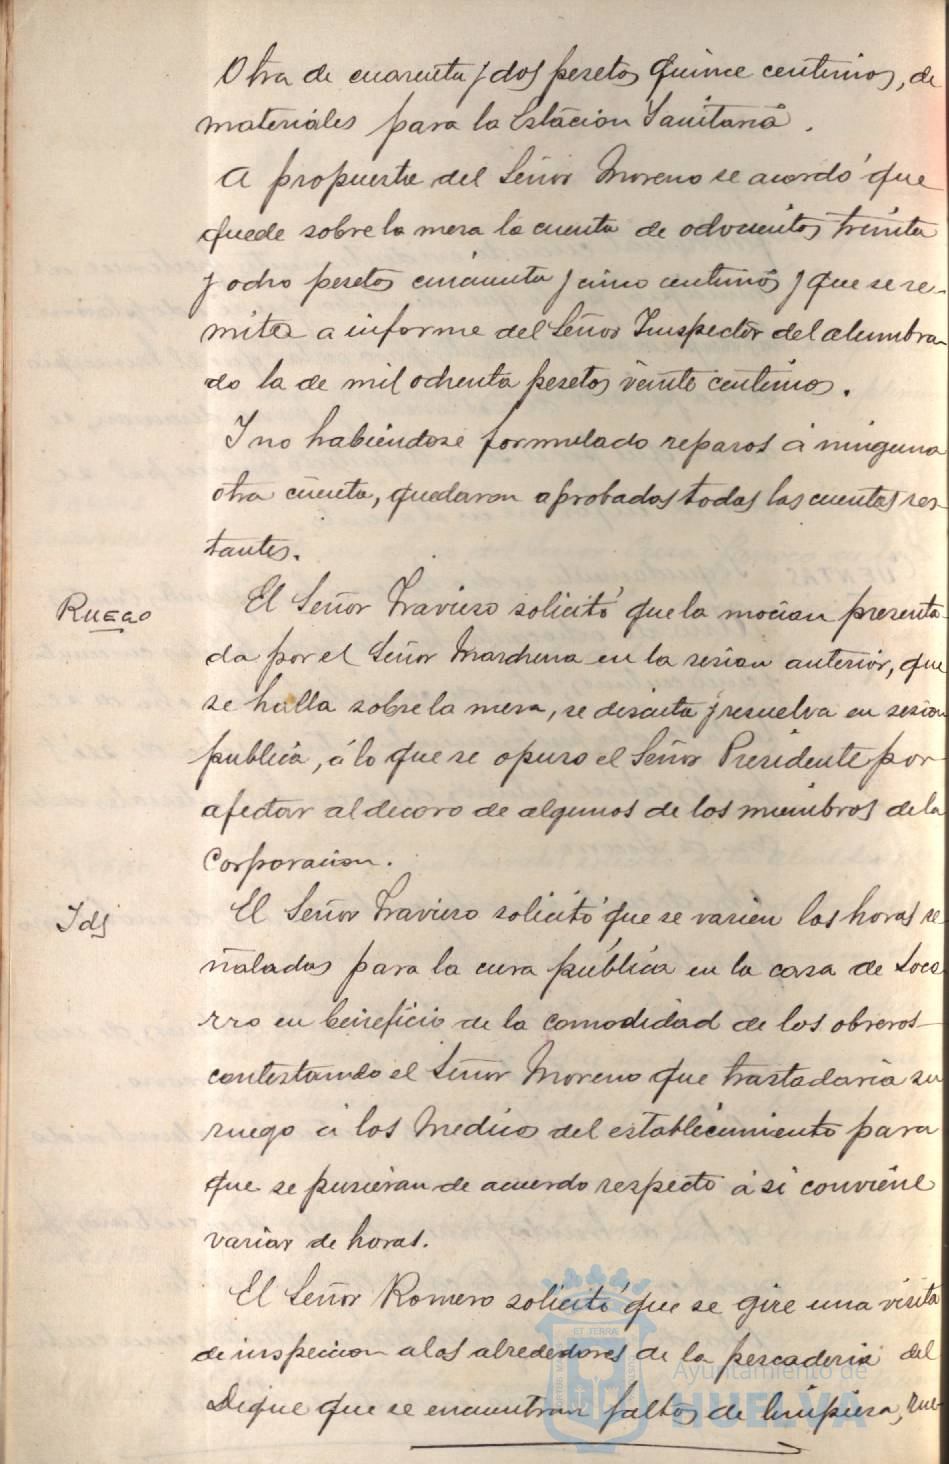 Otra de cuarenta y dos pesetas quince centimos, de
materiales para la Estación Sanitaria.
A propuesta del Señor Moreno se acordó que
quede sobre la mesa la cuenta de odocientos treinta
y odio pesetas cincuenta y cinco centimos y que se re-
mita a informe del Señor Inspector del alumbra-
do la de mil ochenta pesetas veinte centimos.
Y no habiéndose formulado reparos á ninguna
otra cuenta, quedaron aprobadas todas las cuentas res-
tantes.
RUEGO
El Señor Travieso solicitó que la mocion presenta-
da por el Señor Marchena en la sesion anterior, que
se halla sobre la mesa, se discuta y resuelva en sesion
publica, á lo que se opuso el Señor Presidente por
afectar al decoro de algunos de los miembros de la
Corporacion.
Id
El Señor Travieso solicitó que se varien las horas se
ñaladas para la cura pública en la casa de Soco
rro en beneficio de la comodidad de los obreros
contestando el Señor Moreno que trasladaria su
ruego á los Medicos del establecimiento para
que se pusieran de acuerdo respecto á si conviene
variar de horas.
El Señor Romero solicitó que se gire una visita
de inspeccion a los alrededores de la pescaderia del
Dique que se encuentran faltos de limpieza, rue-
Ayuntamiento de
HUELVA